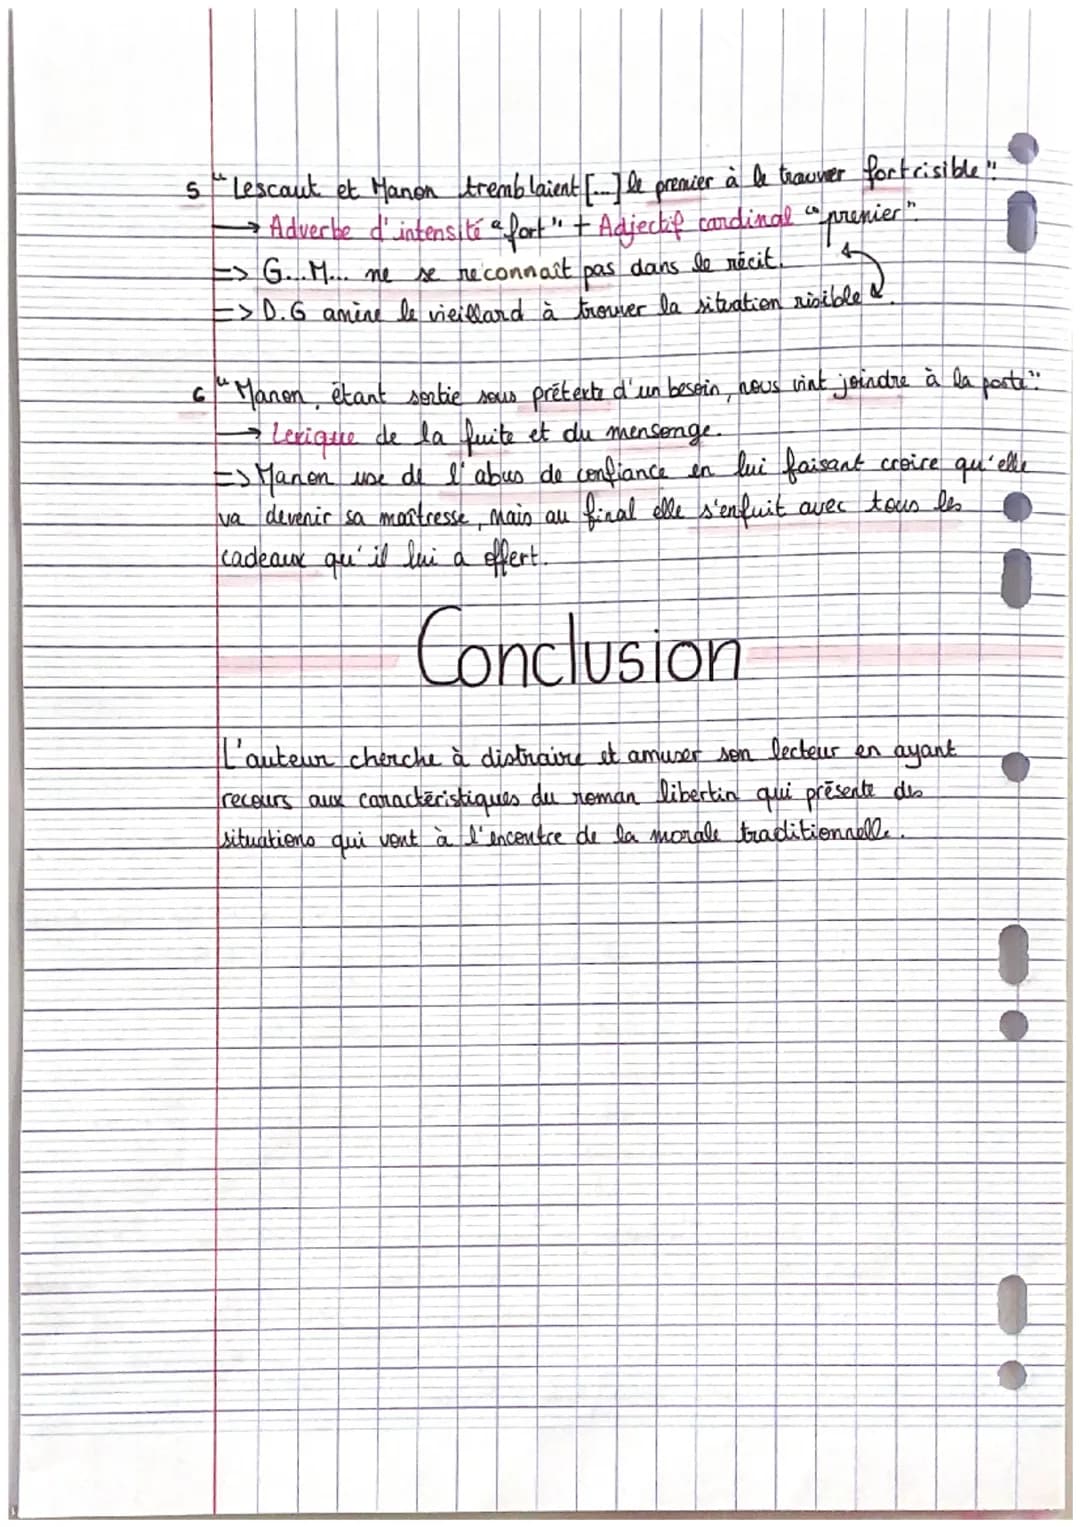 5 "Lescaut et Manon tremblaient [...] le premier à le trouver fort risible".
→ Adverbe d'intensité "fort" + Adjectif cardinal "premier".
=> G...M... ne se reconnaît pas dans le récit.
=> D.G amène le vieillard à trouver la situation risible.
6 "Manon, étant sortie sous prétexte d'un besoin, nous vint joindre à la porte".
→ Lexique de la fuite et du mensonge.
=> Manon use de l'abus de confiance en lui faisant croire qu'elle
va devenir sa maîtresse, mais au final elle s'enfuit avec tous les
cadeaux qu'il lui a offert.
Conclusion
L'auteur cherche à distraire et amuser son lecteur en ayant
recours aux caractéristiques du roman libertin qui présente des
situations qui vont à l'encontre de la morale traditionnelle.